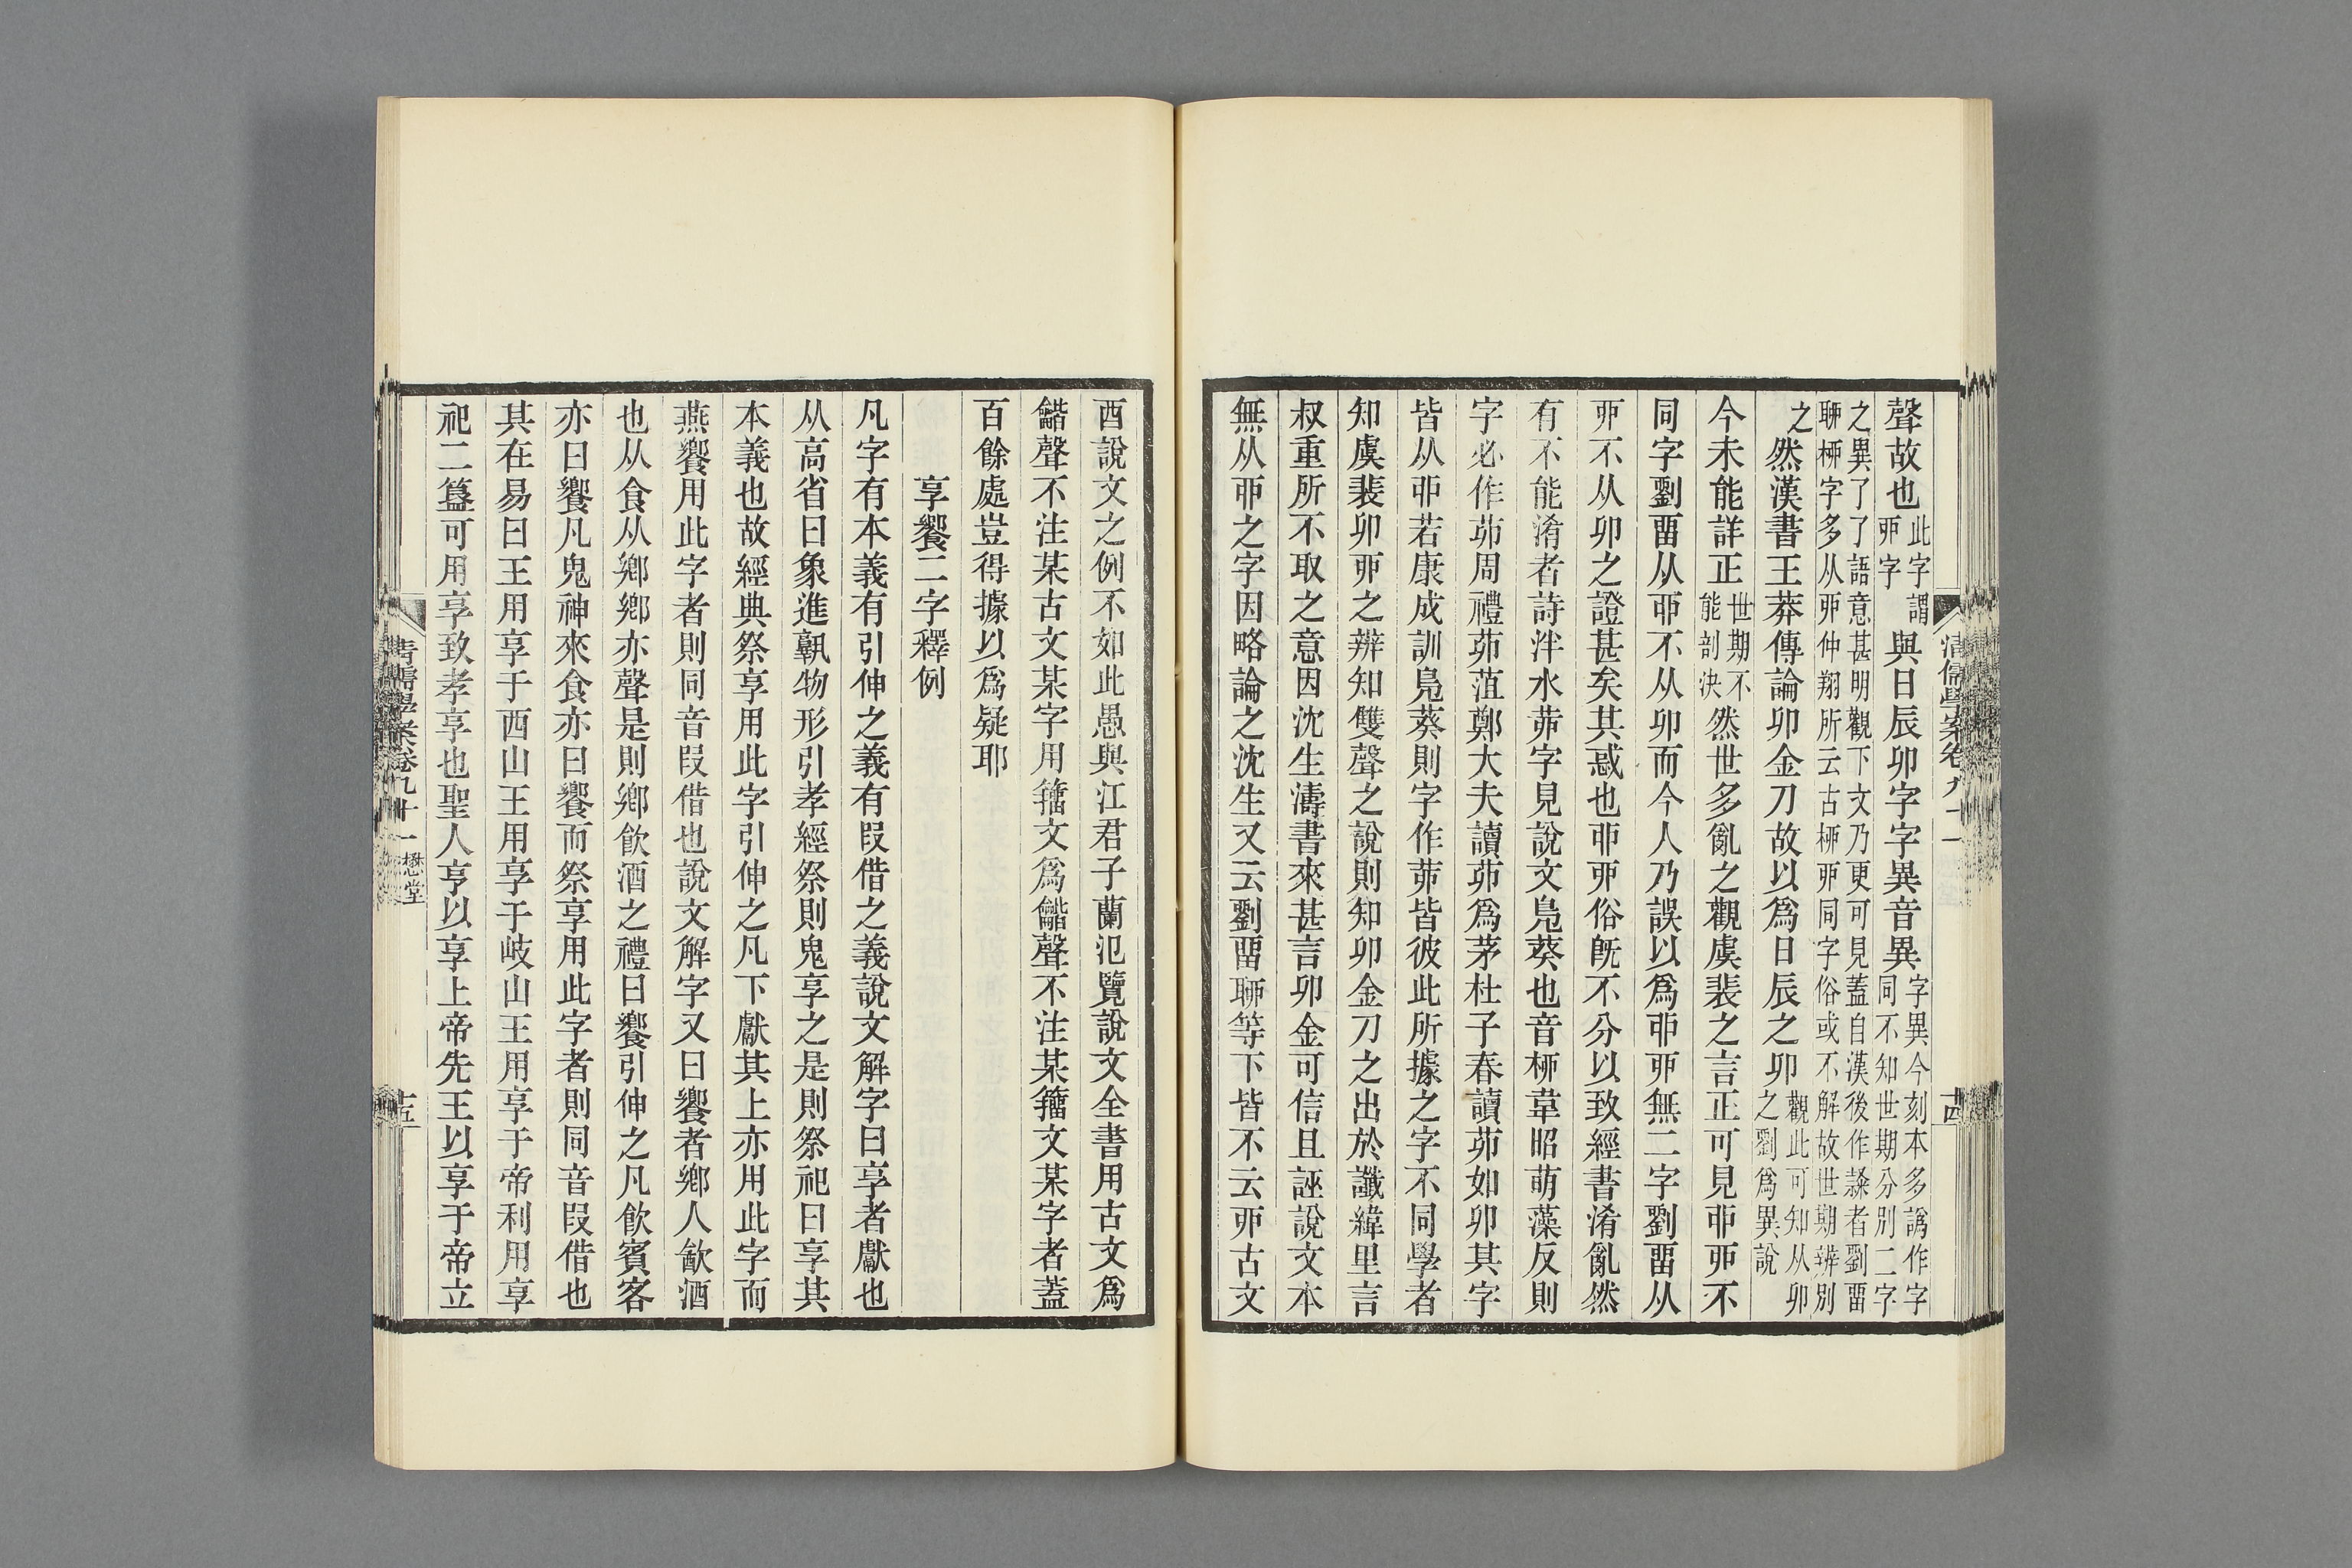 清儒學案卷九十一
十四
聲故也
此字謂
丣字
與日辰卯字字異音異
字異今刻本多譌作字
同不知世期分別二字
之異了了語意甚明觀下文乃更可見蓋自漢後作隸者劉畱
聊桺字多从丣仲翔所云古桺丣同字俗或不解故世期辨別
之
然漢書王莽傳論卯金刀故以爲日辰之卯
觀此可知从卯
之劉爲異說
今未能詳正
世期不
能剖決
然世多亂之觀虞裴之言正可見戼丣不
同字劉畱从戼不从卯而今人乃誤以爲戼丣無二字劉畱从
丣不从卯之證甚矣其惑也戼丣俗旣不分以致經書淆亂然
有不能淆者詩泮水茆字見說文鳧葵也音桺韋昭萌藻反則
字必作茆周禮茆菹鄭大夫讀茆爲茅杜子春讀茆如卯其字
皆从戼若康成訓鳧葵則字作茆皆彼此所據之字不同學者
知虞裴卯丣之辨知雙聲之說則知卯金刀之出於讖緯里言
叔重所不取之意因沈生濤書來甚言卯金可信且誣說文本
無从戼之字因略論之沈生又云劉畱聊等下皆不云丣古文
酉說文之例不如此愚與江君子蘭氾覽說文全書用古文爲
龤聲不注某古文某字用籒文爲龤聲不注某籒文某字者蓋
百餘處豈得據以爲疑耶
享饗二字釋例
凡字有本義有引伸之義有叚借之義說文解字曰享者獻也
从高省曰象進孰物形引孝經祭則鬼享之是則祭祀曰享其
本義也故經典祭享用此字引伸之凡下獻其上亦用此字而
燕饗用此字者則同音叚借也說文解字又曰饗者鄉人歙酒
也从食从鄉鄉亦聲是則鄉飮酒之禮曰饗引伸之凡飮賓客
亦曰饗凡鬼神來食亦曰饗而祭享用此字者則同音叚借也
其在易曰王用享于西山王用享于岐山王用享于帝利用享
祀二簋可用享致孝享也聖人亨以享上帝先王以享于帝立
清儒學案卷九十一
懋堂
十五